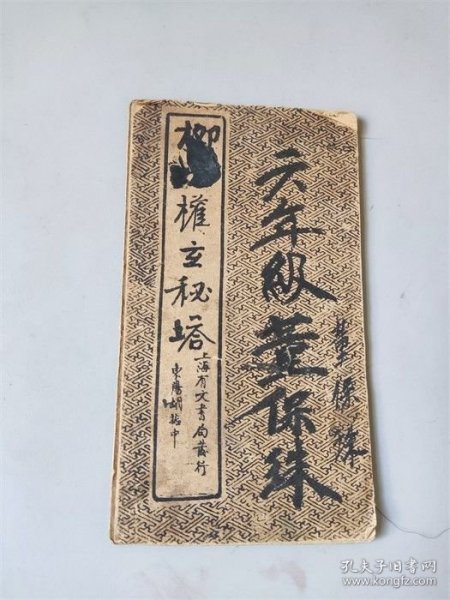 六年級董保珠
董保珠
柳權玄秘塔
上海育文書局發行
東陽胡中
孔夫子旧书网
www.kongfz.com